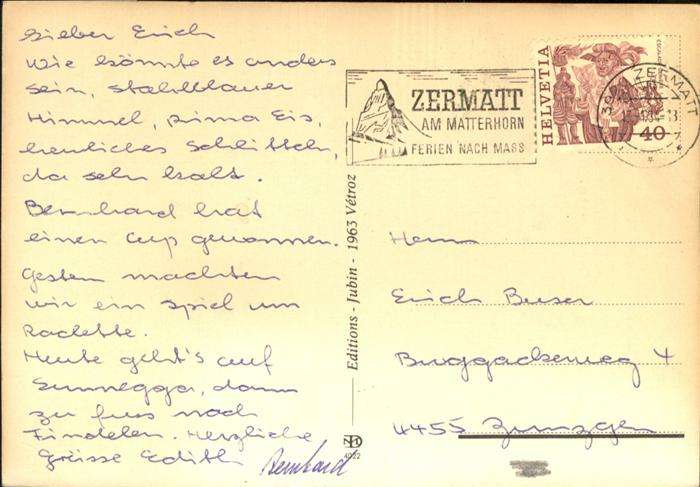 Lieber Erich
Wie könnte es anders
sein, stahlblauer
Himmel, prima Eis,
herrliches Schlitteln,
da sehr kalt.
Bernhard hat
einen Cup gewonnen.
Gestern machten
wir ein Spiel um
Raclette.
Heute geht's auf
Sunnegga, dann
zu fuss nach
Findelen. Herzliche
Grüsse Edith Bernhard
Editions - Jubin - 1963 Vétroz
4022
ZERMATT
AM MATTERHORN
FERIEN NACH MASS
HELVETIA
40
ZERMATT
Herrn
Erich Buser
Buggackerweg 4
4455 Zunzgen